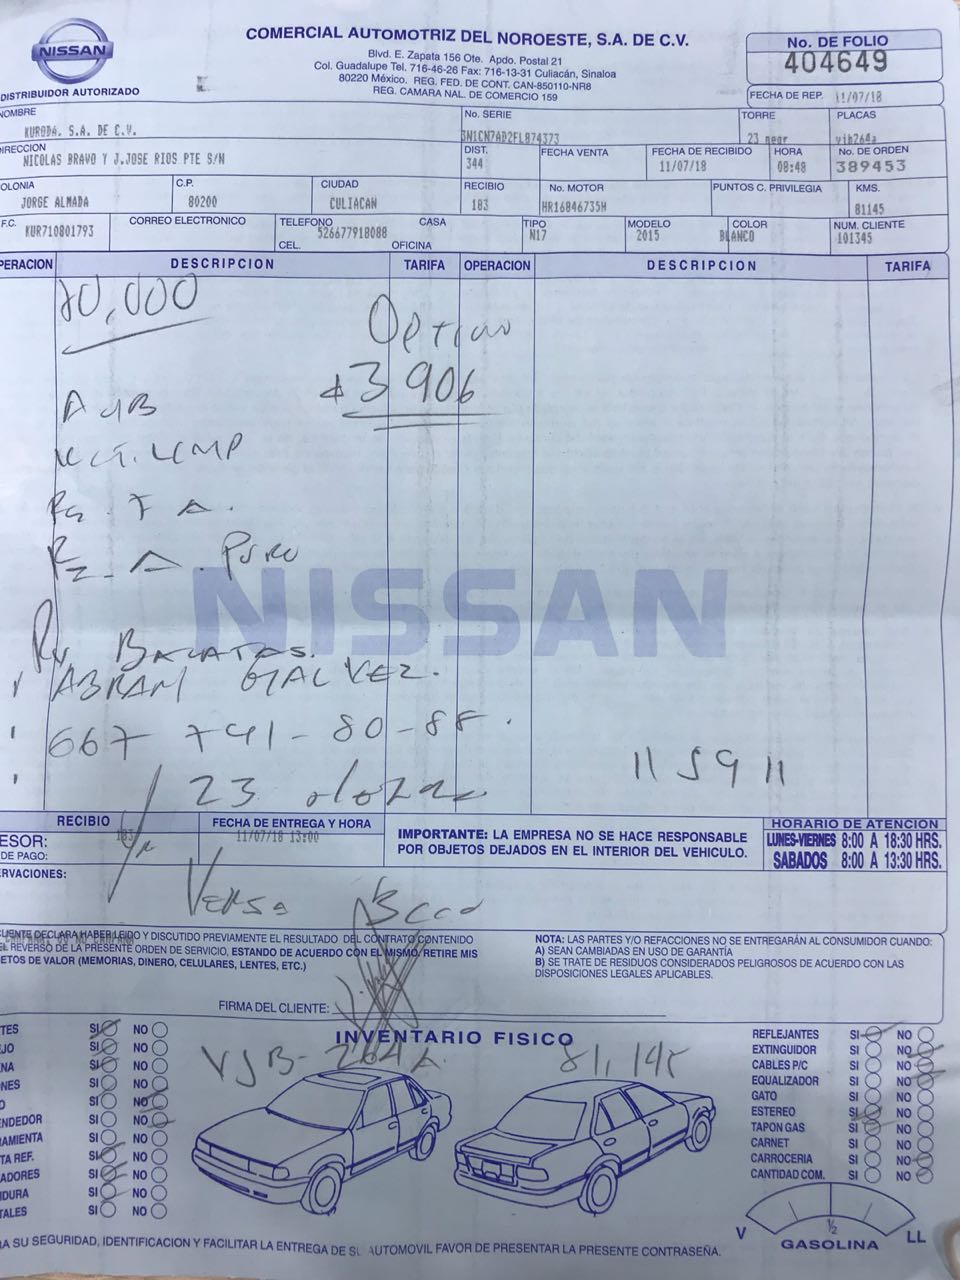 NISSAN
DISTRIBUIDOR AUTORIZADO
COMERCIAL AUTOMOTRIZ DEL NOROESTE, S.A. DE C.V.
Blvd. E. Zapata 156 Ote. Apdo. Postal 21
Col. Guadalupe Tel. 716-46-26 Fax: 716-13-31 Culiacán, Sinaloa
80220 México. REG. FED. DE CONT. CAN-850110-NR8
REG. CAMARA NAL. DE COMERCIO 159
No. DE FOLIO
404649
FECHA DE REP. 11/07/18
NOMBRE
KURODA, S.A. DE C.V.
No. SERIE
3N1CN7AD2FL874373
TORRE
23 negr
PLACAS
vjb264a
DIRECCION
NICOLAS BRAVO Y J.JOSE RIOS PTE S/N
DIST.
344
FECHA VENTA
FECHA DE RECIBIDO
11/07/18
HORA
08:48
No. DE ORDEN
389453
OLONIA
JORGE ALMADA
C.P.
80200
CIUDAD
CULIACAN
RECIBIO
183
No. MOTOR
HR16846735H
PUNTOS C. PRIVILEGIA
KMS.
81145
F.C.
KUR710801793
CORREO ELECTRONICO
TELEFONO
526677918088
CASA
CEL.
OFICINA
TIPO
N17
MODELO
2015
COLOR
BLANCO
NUM. CLIENTE
101345
PERACION DESCRIPCION TARIFA OPERACION DESCRIPCION TARIFA
Optimo
3 906
AyB
Rz. A. Puro
NISSAN
BALATAS.
ABRAM GALVEZ.
667 741-80-88.
23
11 59 11
RECIBIO
183
FECHA DE ENTREGA Y HORA
11/07/18 13:00
ESOR:
DE PAGO:
IMPORTANTE: LA EMPRESA NO SE HACE RESPONSABLE
POR OBJETOS DEJADOS EN EL INTERIOR DEL VEHICULO.
HORARIO DE ATENCION
LUNES-VIERNES 8:00 A 18:30 HRS.
SABADOS 8:00 A 13:30 HRS.
RVACIONES:
Versa
IENTE DECLARA HABER LEIDO Y DISCUTIDO PREVIAMENTE EL RESULTADO DEL CONTRATO CONTENIDO
EL REVERSO DE LA PRESENTE ORDEN DE SERVICIO, ESTANDO DE ACUERDO CON EL MISMO, RETIRE MIS
ETOS DE VALOR (MEMORIAS, DINERO, CELULARES, LENTES, ETC.)
NOTA: LAS PARTES Y/O REFACCIONES NO SE ENTREGARÁN AL CONSUMIDOR CUANDO:
A) SEAN CAMBIADAS EN USO DE GARANTÍA
B) SE TRATE DE RESIDUOS CONSIDERADOS PELIGROSOS DE ACUERDO CON LAS
DISPOSICIONES LEGALES APLICABLES.
FIRMA DEL CLIENTE:
INVENTARIO FISICO
VJB-264A 81,145
TES SI NO
JO SI NO
NA SI NO
NES SI NO
O SI NO
NDEDOR SI NO
RAMIENTA SI NO
TA REF. SI NO
ADORES SI NO
IDURA SI NO
TALES SI NO
REFLEJANTES SI NO
EXTINGUIDOR SI NO
CABLES P/C SI NO
EQUALIZADOR SI NO
GATO SI NO
ESTEREO SI NO
TAPON GAS SI NO
CARNET SI NO
CARROCERIA SI NO
CANTIDAD COM. SI NO
V ½ LL
GASOLINA
A SU SEGURIDAD, IDENTIFICACION Y FACILITAR LA ENTREGA DE SU AUTOMOVIL FAVOR DE PRESENTAR LA PRESENTE CONTRASEÑA.